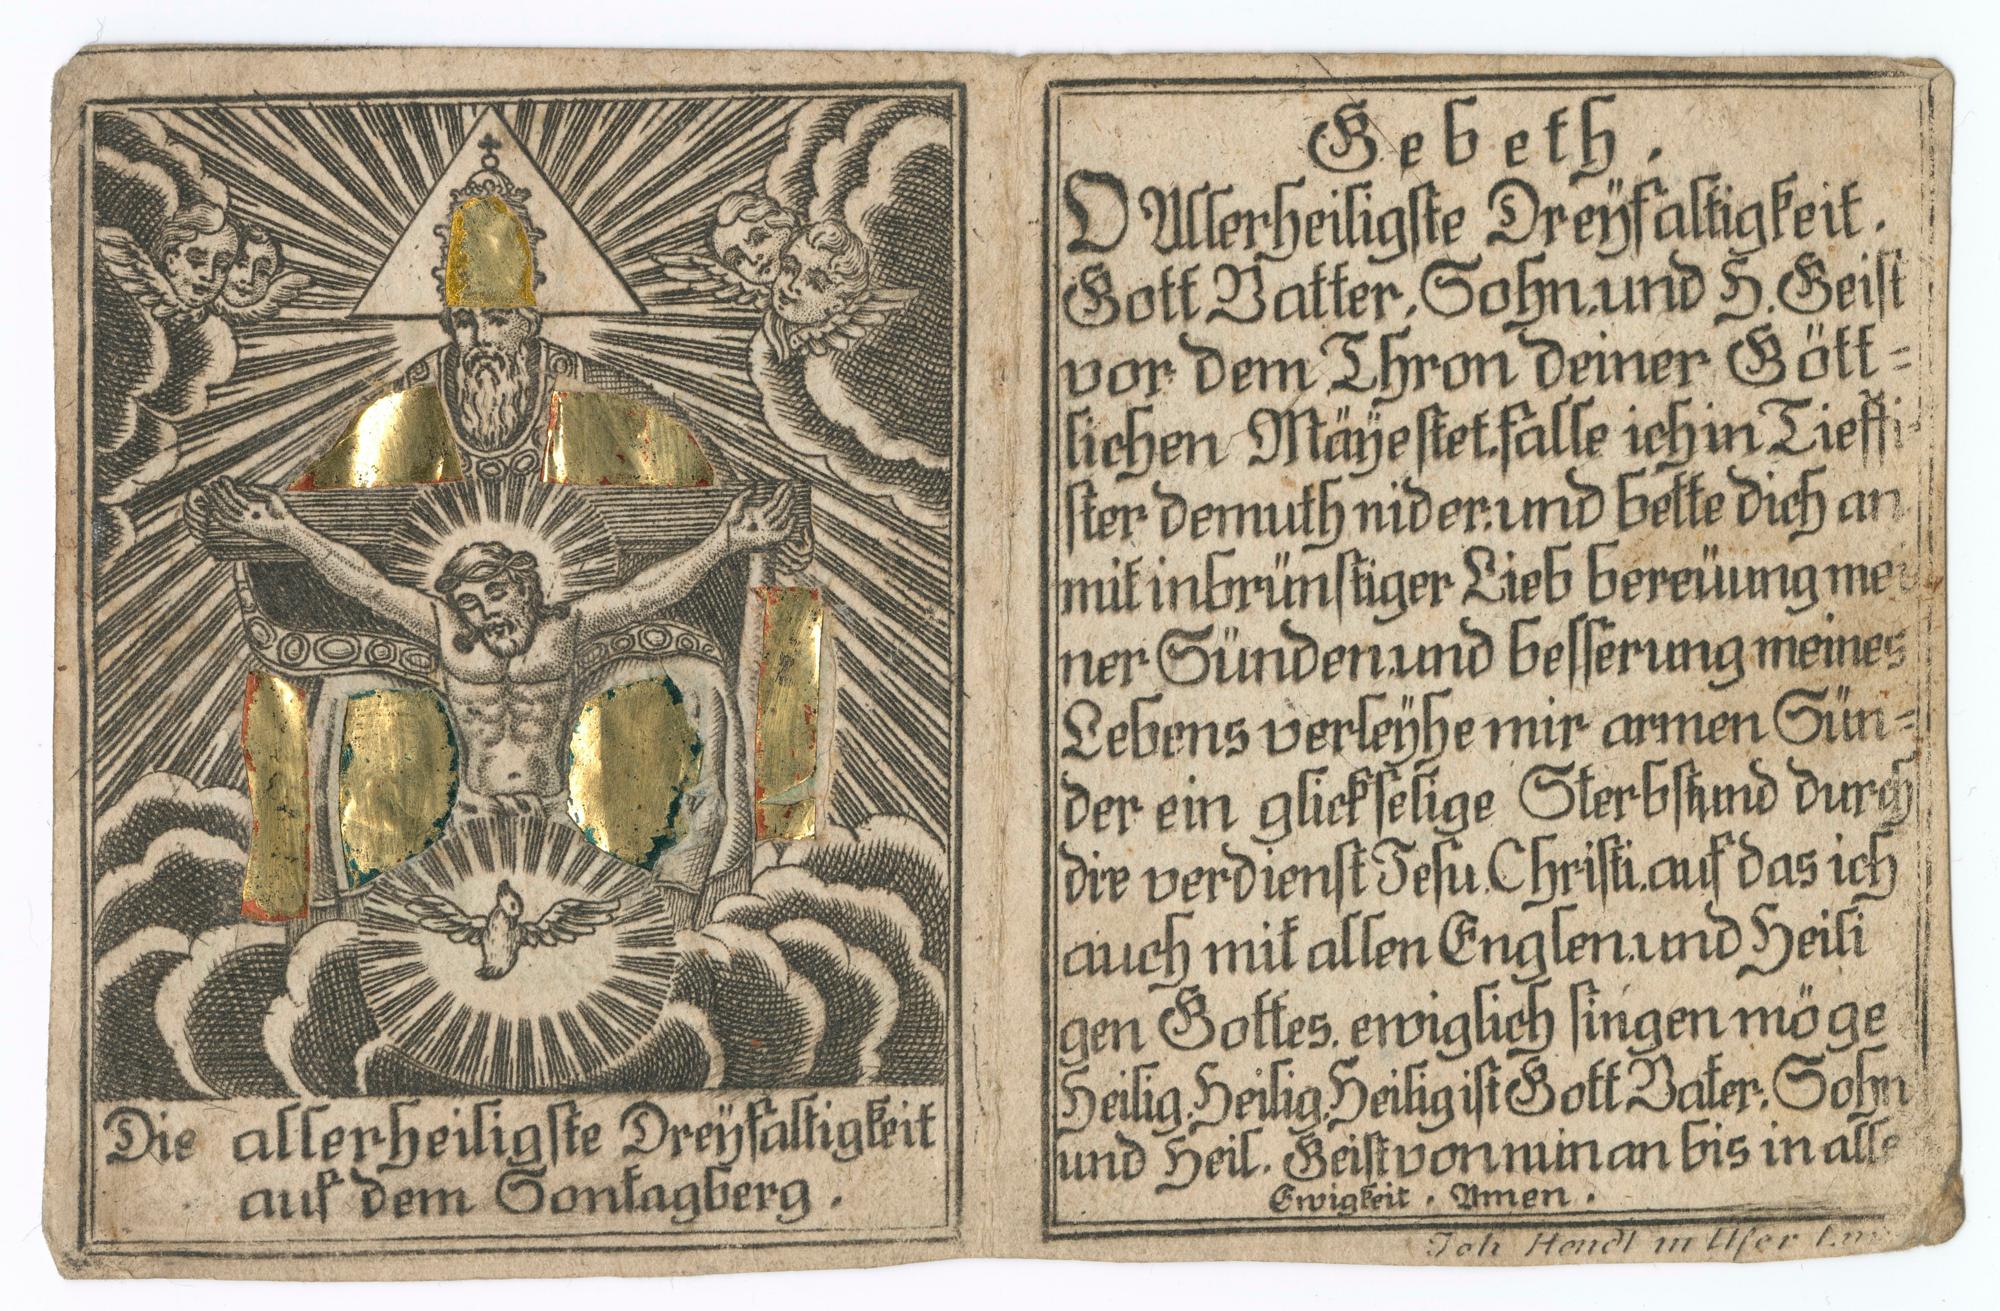 Die allerheiligste Dreÿfaltigkeit
auf dem Sontagberg.
Gebeth.
O Allerheiligste Dreÿfaltigkeit.
Gott Vatter, Sohn, und H. Geist
vor dem Thron deiner Gött=
lichen Mäÿestet, falle ich in Tieffi-
ster demuth nider, und bette dich an
mit inbrünstiger Lieb bereüung mei
ner Sünden, und besserung meines
Lebens verleÿhe mir armen Sün=
der ein glickselige Sterbstund durch
die verdienst Jesu, Christi, auf das ich
auch mit allen Englen, und Heili
gen Gottes, ewiglich singen möge
Heilig, Heilig, Heilig ist Gott Vater, Sohn
und Heil. Geist von nun an bis in alle
Ewigkeit. Amen.
Joh Hendl in